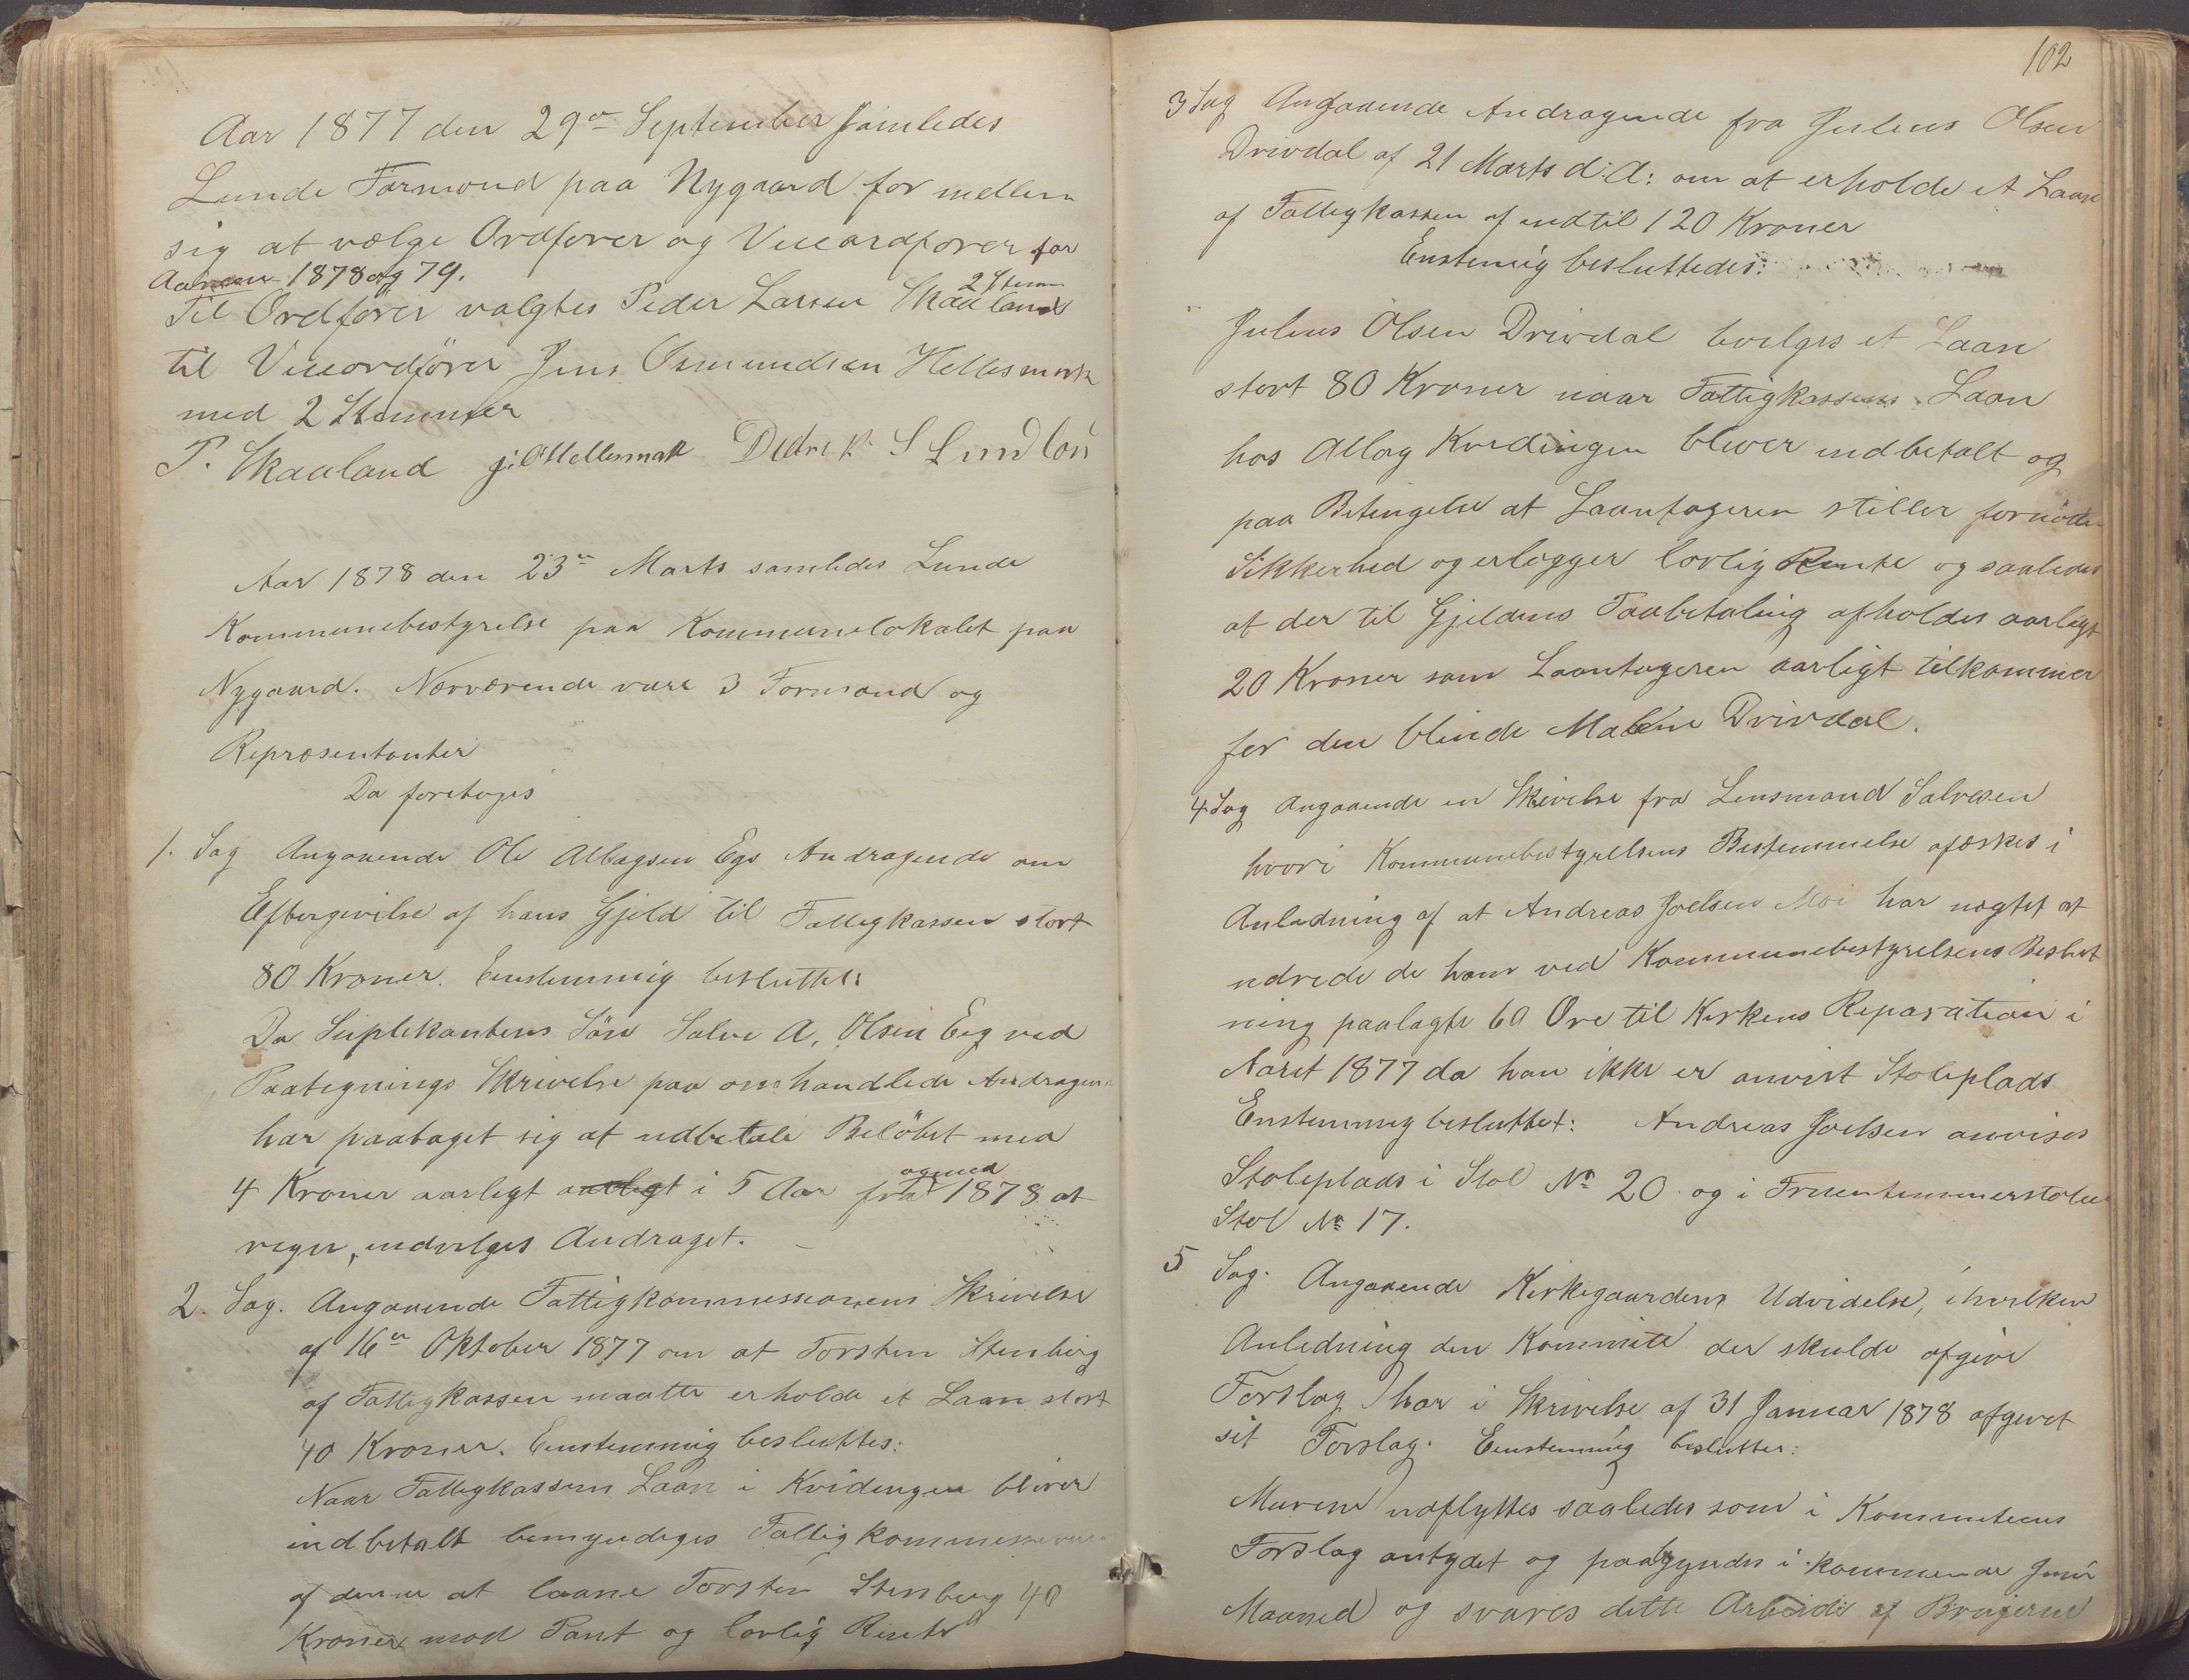 Aar 1877 den 29de September samledes
Lunde Formænd paa Nygaard for mellem
sig at vælge Ordfører og Viceordfører for
Aarene 1878 og 79.
2 Stem
Til Ordfører valgtes Peder Larsen Skaaland
til Viceordfører Jens Osmundsen Hellesmark
med 2 Stemmer
P. Skaaland J. O. Hellesmark
Aar 1878 den 23de Marts samledes Lunde
Kommunebestyrelse paa Kommunelokalet paa
Nygaard. Nærværende vare 3 Formænd og
Repræsentanter
Da foretoges
1. Sag Angaaende Ole Atlagsen Egs Andragende om
Eftergivelse af hans Gjeld til Fattigkassen stort
80 Kroner. Eenstemmig besluttet:
Da Suplikantens Sön Salve A. Olsen Eeg ved
Paategnings Skrivelse paa omhandlede Andragen
har paataget sig at udbetale Belöbet med
ogmed
4 Kroner aarligt aarligt i 5 Aar fra 1878 at
regne, indvilges Andraget.
2. Sag. Angaaende Fattigkommissionens Skrivelse
af 16de Oktober 1877 om at Torsten Stenberg
af Fattigkassen maatte erholde et Laan stort
40 Kroner. Eenstemmig besluttes:
Naar Fattigkassens Laan i Kvidingen bliver
indbetalt bemyndiges Fattigkommissionen
af denne at laane Torsten Stenberg 40
Kroner mod Pant og lovlig Rente
102
3 Sag Angaaende Andragende fra Julius Olsen
Drivdal af 21 Marts d: A: om at erholde et Laan
af Fattigkassen af indtil 120 Kroner
Enstemig besluttedes:
Julius Olsen Drivdal bevilges et Laan
stort 80 Kroner naar Fattigkassens Laan
hos Atlag Kvidingen bliver indbetalt og
paa Betingelse at Laantageren stiller fornøden
Sikkerhed og erlægger lovlig Rente og saaledes
at der til Gjeldens Faabetaling afholdes aarligt
20 Kroner som Laantageren aarligt tilkommer
for den blinde Malene Drivdal.
4 Sag angaaende en Skrivelse fra Lensmand Salvesen
hvori Kommunebestyrelsens Bestemmelse afæskes i
Anledning af at Andreas Joelsen Moi har nægtet at
udrede de ham ved Kommunebestyrelsens Beslut
ning paalagte 60 Øre til Kirkens Reparation i
Aaret 1877 da han ikke er anvist Stoleplads
Enstemmig besluttet: Andreas Joelsen anvises
Stoleplads i Stol No 20 og i Fruentimmerstolen
Stol No 17.
5 Sag. Angaaende Kirkegaardens Udvidelse, i hvilken
Anledning den Kommite der skulde afgive
Forslag har i Skrivelse af 31 Januar 1878 afgivet
sit Forslag. Eenstemmig beslutter:
Murene udflyttes saaledes som i Kommiteens
Forslag antydet og paabegyndes i kommende Juni
Maaned og svares dette Arbeide af Brugerne